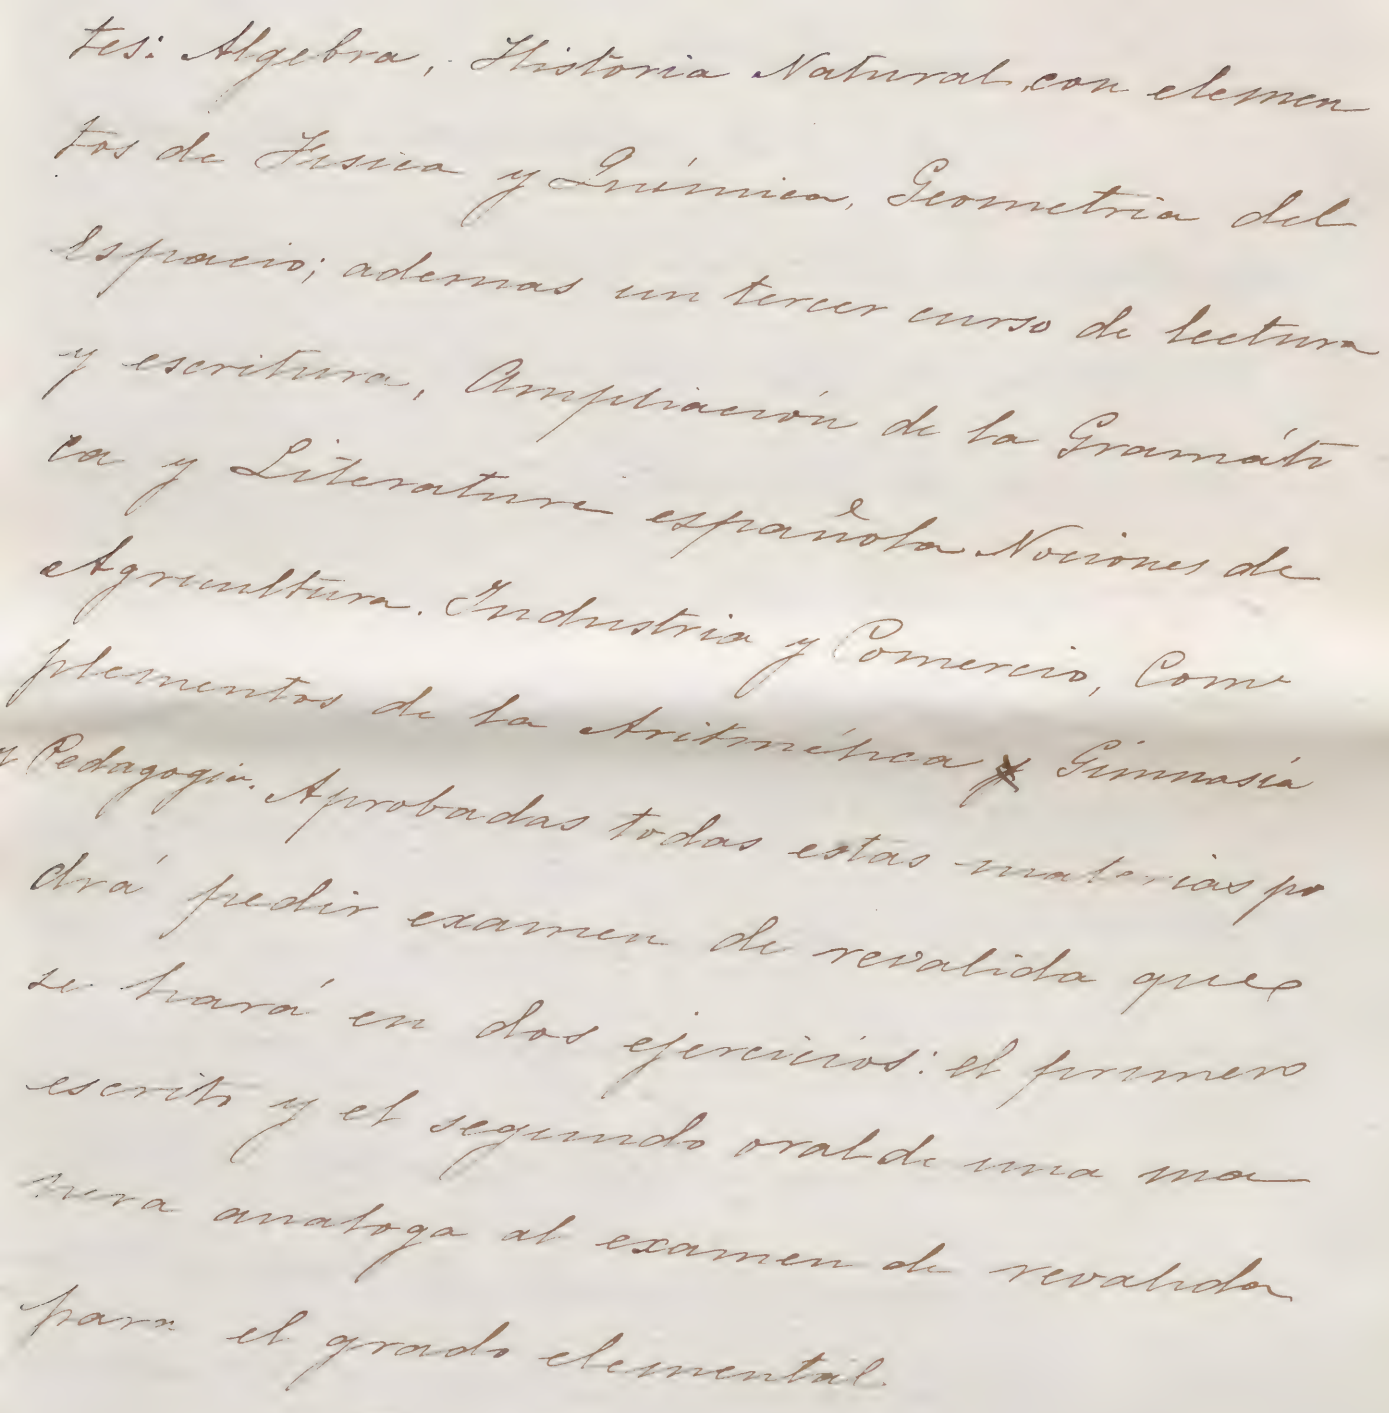 tes: Algebra, Historia Natural con elemen
tos de Fisica y Química, Geometria del
Espacio; ademas un tercer curso de lectura
y escritura, Ampliación de la Gramáti
ca y Literatura española Nociones de
Agricultura. Industria y Comercio, Com
plementos de la Aritmética y Gimnasía
y Pedagogía. Aprobadas todas estas materias po
drá pedir examen de revalida que
se hará en dos ejercicios: el primero
escrito y el segundo oral de una ma
nera analoga al examen de revalida
para el grado elemental.